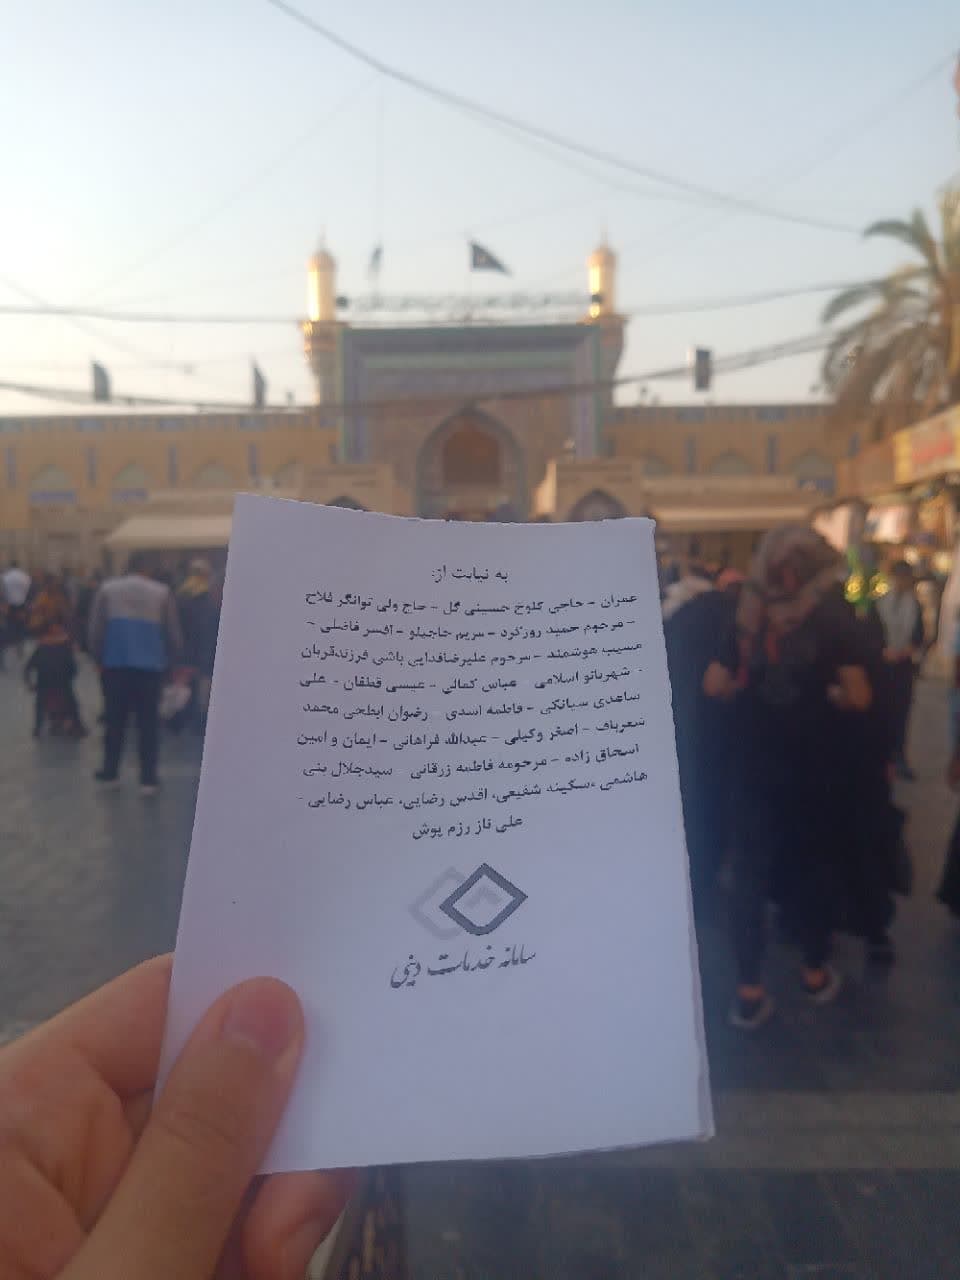 به نیابت از:
عمران - حاجی کلوخ حسینی گل - حاج ولی توانگر فلاح
- مرحوم حمید روزگرد - مریم حاجیلو - افسر فاضلی -
مسیب هوشمند - مرحوم علیرضا فدایی باشی فرزند قربان
- شهربانو اسلامی - عباس کمالی - عیسی قطفان - علی
ساعدی سیانکی - فاطمه اسدی - رضوان ابطحی محمد
شعرباف - اصغر وکیلی - عبدالله فراهانی - ایمان و امین
اسحاق زاده - مرحومه فاطمه زرقانی - سیدجلال بنی
هاشمی ،سکینه شفیعی، اقدس رضایی، عباس رضایی -
علی ناز رزم پوش
سامانه خدمات دینی